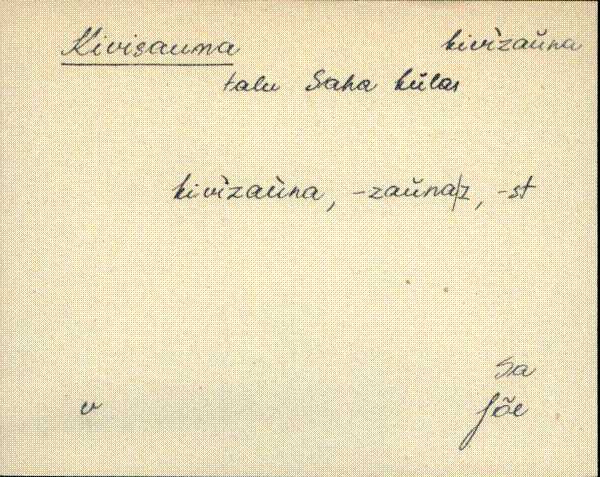 Kivisauna kivìzaŭna
talu Saha külas
kivìzaùna, -zaŭna|z, -st
Sa
v Jõe